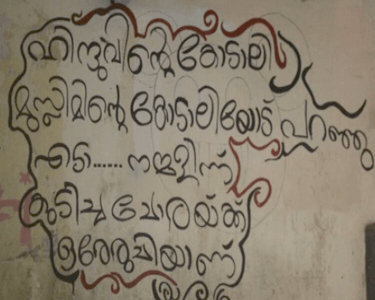 ഹിന്ദുവിന്റെ കോടാലി
മുസ്ലിമിന്റെ കോടാലിയോട് പറഞ്ഞു
എടാ...... നമ്മളിന്ന്
കുടിച്ച ചോരയ്ക്ക്
ഒരേരുചിയാണ്